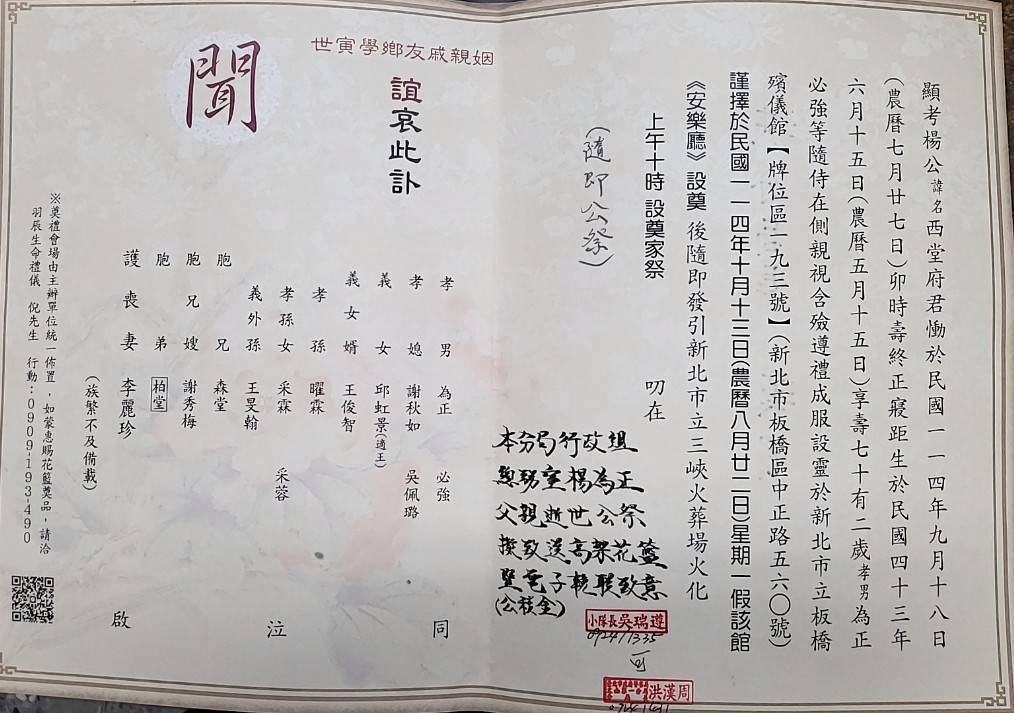 顯考楊公諱名西堂府君慟於民國一一四年九月十八日
(農曆七月廿七日)卯時壽終正寢距生於民國四十三年
六月十五日(農曆五月十五日)享壽七十有二歲孝男為正
必強等隨侍在側親視含殮遵禮成服設靈於新北市立板橋
殯儀館【牌位區一九三號】(新北市板橋區中正路五六〇號)
謹擇於民國一一四年十月十三日(農曆八月廿二日)星期一假該館
《安樂廳》設奠 後隨即發引新北市立三峽火葬場火化
上午十時 設奠家祭
(隨即公祭)
叨在
本分局行政組
總務室楊為正
父親逝世公祭
擬致送高架花籃
暨電子輓聯致意
(公積金)
小隊長吳瑞遵
0924/1335
可
洪漢周
姻親戚友鄉學寅世
誼哀此訃
聞
孝男 為正 必強
孝媳 謝秋如 吳佩璐
義女 邱虹景(適王)
義女婿 王俊智
孝孫 曜霖
孝孫女 采霖 采蓉
義外孫 王旻翰
胞兄 森堂
胞兄嫂 謝秀梅
胞弟 柏堂
護喪妻 李麗珍
(族繁不及備載)
同 泣 啟
※奠禮會場由主辦單位統一佈置，如蒙惠賜花籃奠品，請洽
羽辰生命禮儀 倪先生 行動:0909-193-490